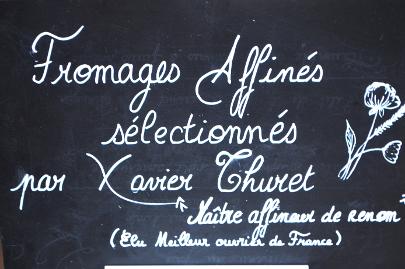 Fromages Affinés
sélectionnés
par Xavier Thuret
Maître affineur de renom
(Elu Meilleur ouvrier de France)